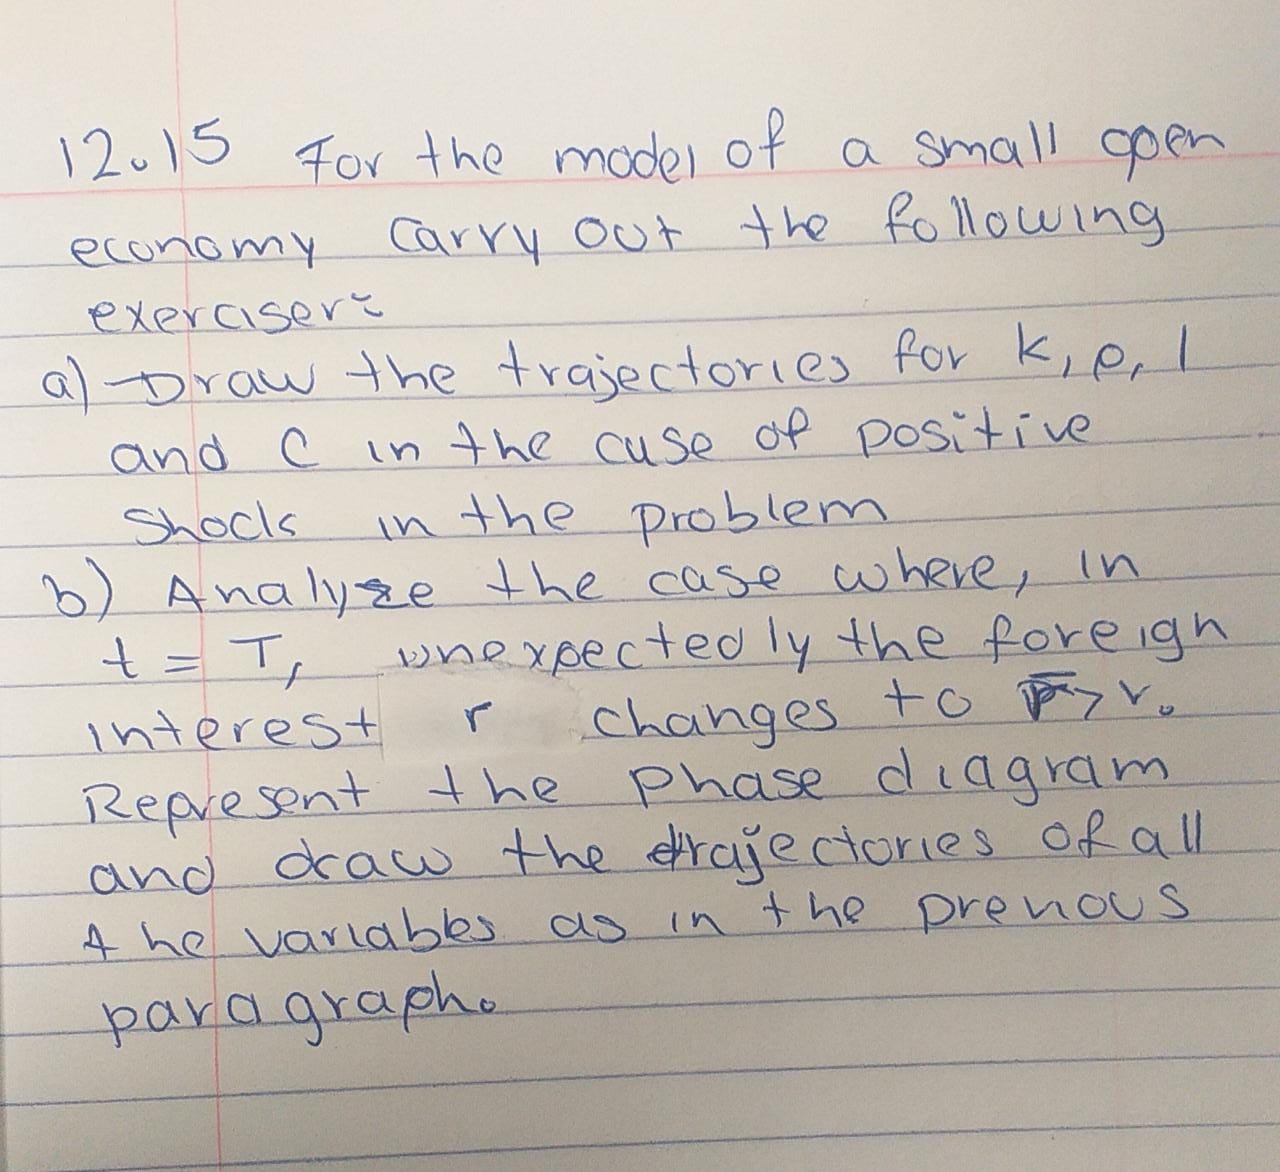 12.15 For the model of a small open
economy carry out the following
exerciser:
a) Draw the trajectories for k, e, l
and C in the cuse of positive
Shocls in the problem
b) Analyze the case where, in
t = T, unexpectedly the foreign
interest r changes to r̅ > r.
Represent the phase diagram
and draw the trajectories of all
the variables as in the prenous
paragraph.